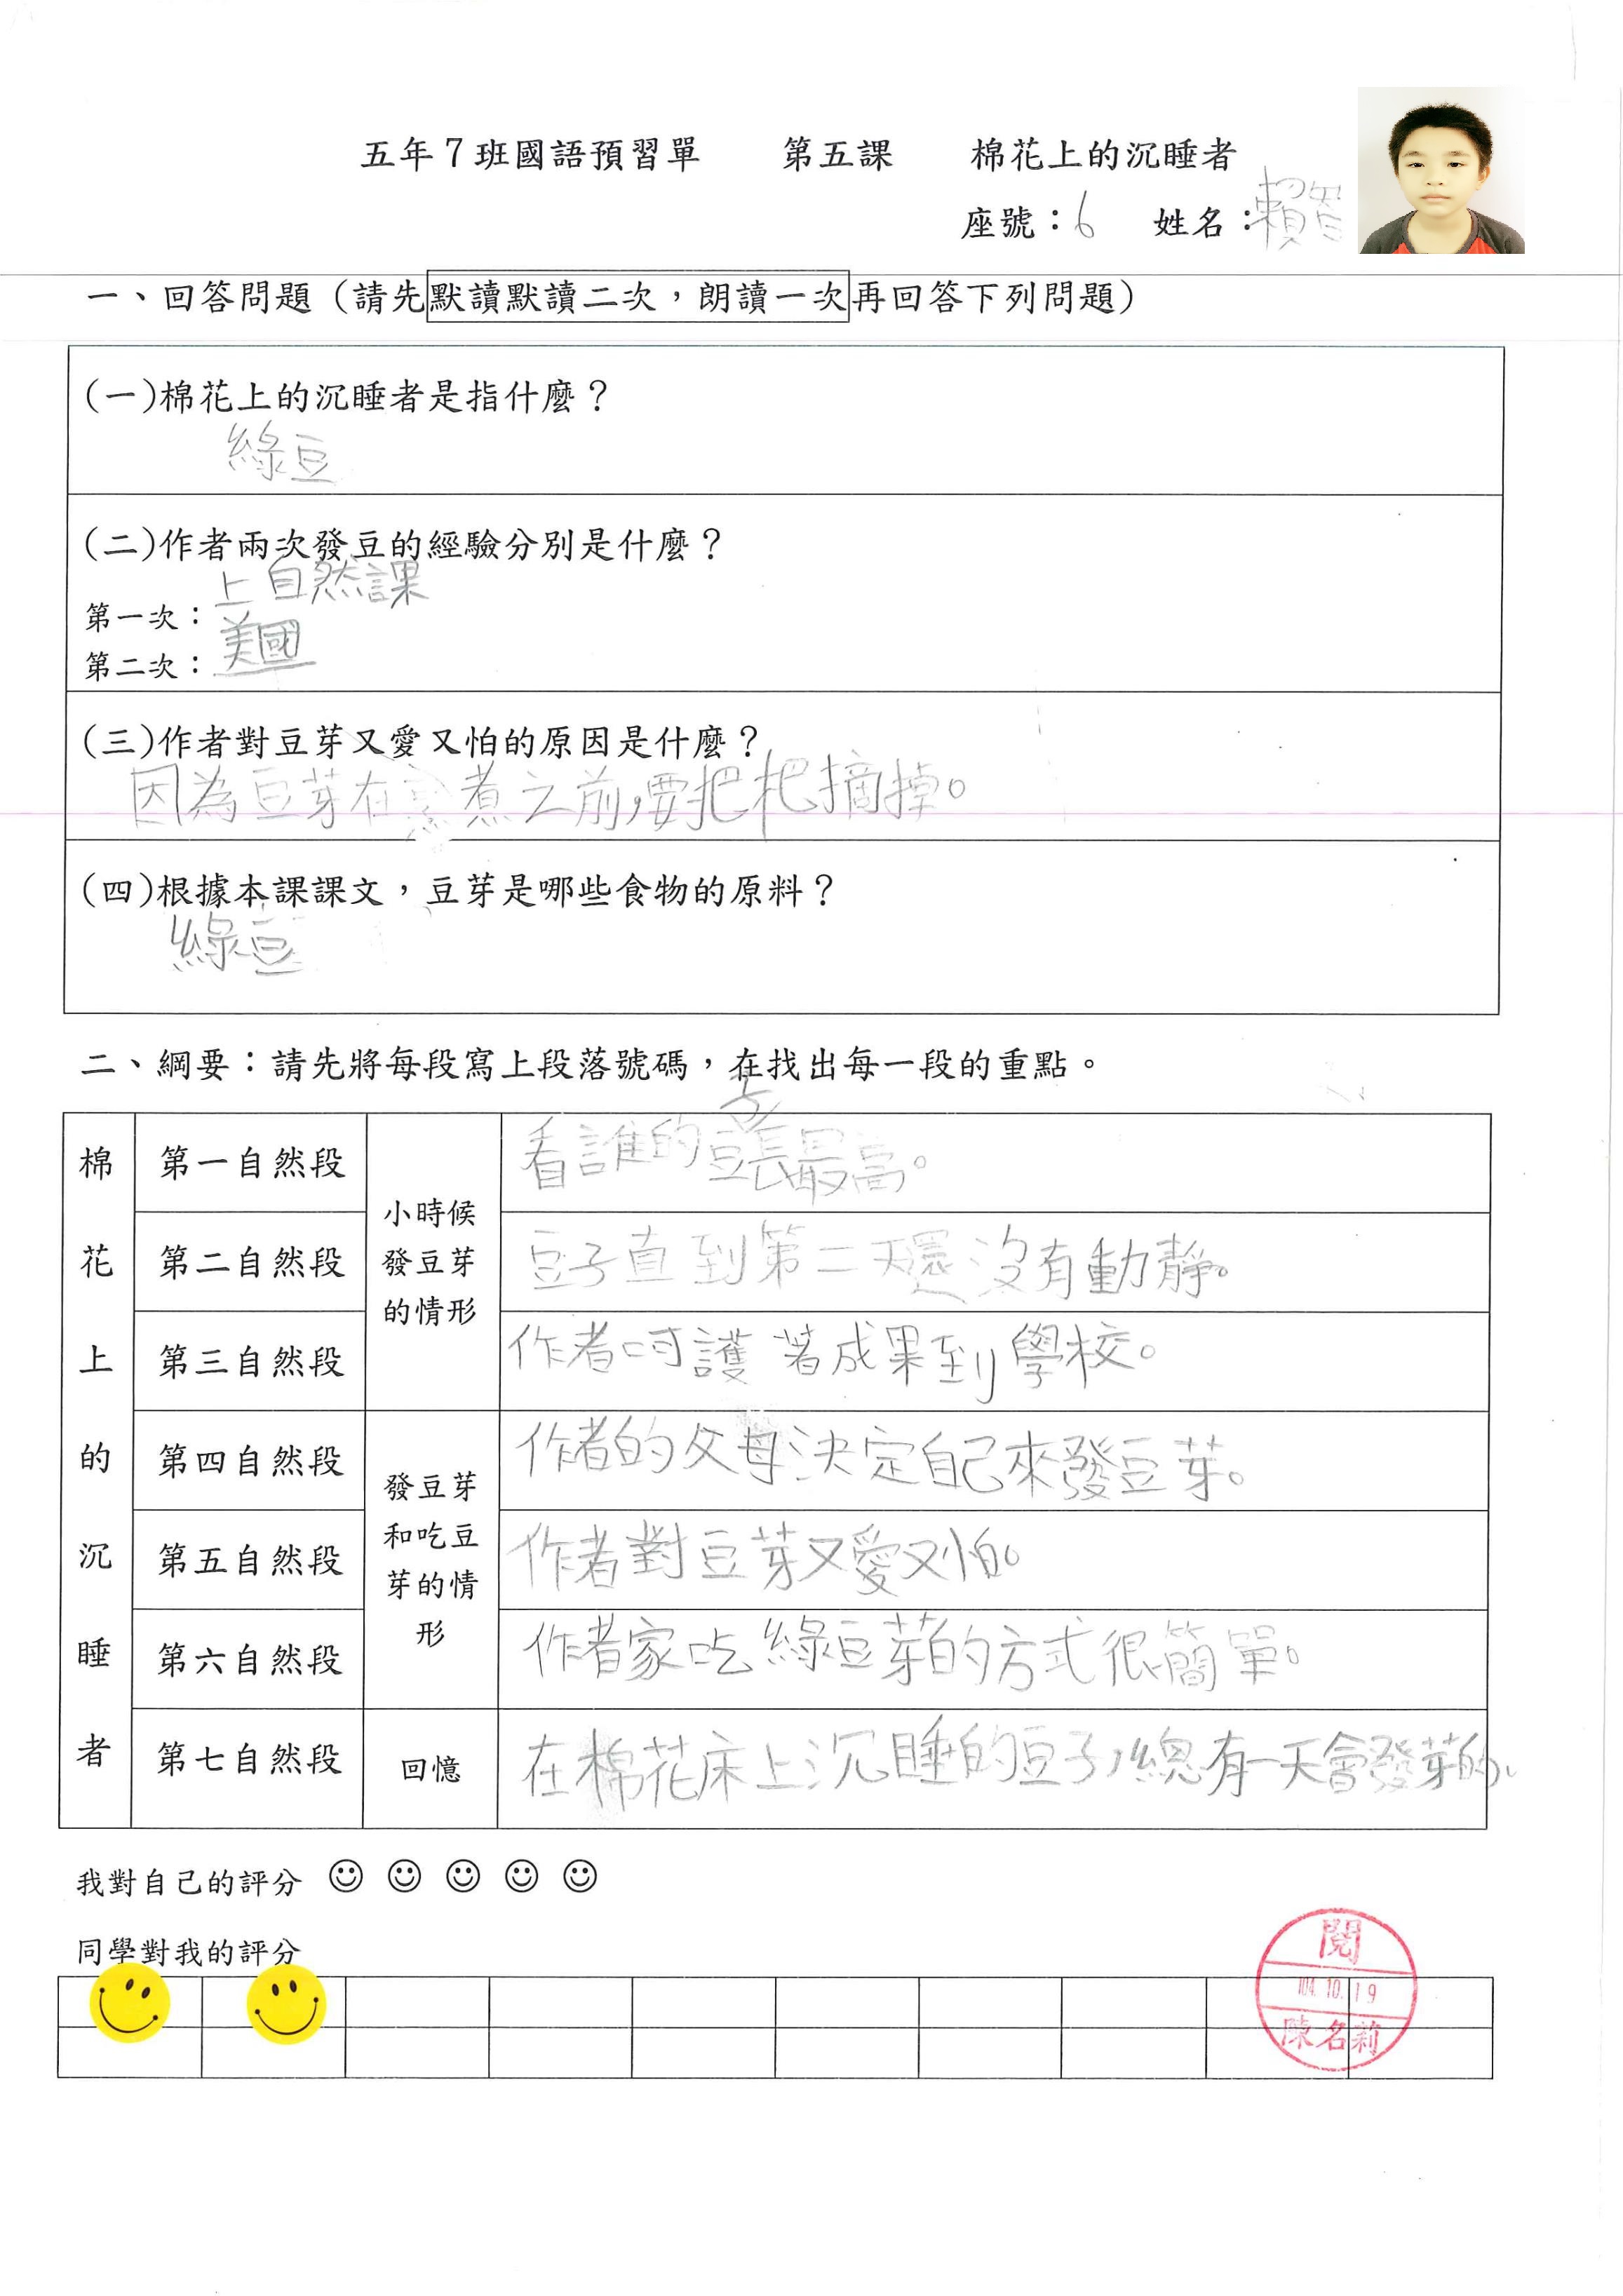 五年7班國語預習單 第五課 棉花上的沉睡者
座號：6 姓名：賴
一、回答問題（請先默讀默讀二次，朗讀一次再回答下列問題）
(一)棉花上的沉睡者是指什麼？
綠豆
(二)作者兩次發豆的經驗分別是什麼？
第一次：上自然課
第二次：美國
(三)作者對豆芽又愛又怕的原因是什麼？
因為豆芽在煮之前，要把摘掉。
(四)根據本課課文，豆芽是哪些食物的原料？
綠豆
二、綱要：請先將每段寫上段落號碼，在找出每一段的重點。
棉花上的沉睡者
第一自然段 看誰的豆子長最高。
小時候發豆芽的情形
第二自然段 豆子直到第二天還沒有動靜。
第三自然段 作者呵護著成果到學校。
第四自然段 作者的父母決定自己來發豆芽。
發豆芽和吃豆芽的情形
第五自然段 作者對豆芽又愛又怕。
第六自然段 作者家吃綠豆芽的方式很簡單。
第七自然段 回憶 在棉花床上沉睡的豆子，總有一天會發芽的。
我對自己的評分
同學對我的評分
閱
104.10.19
陳名莉